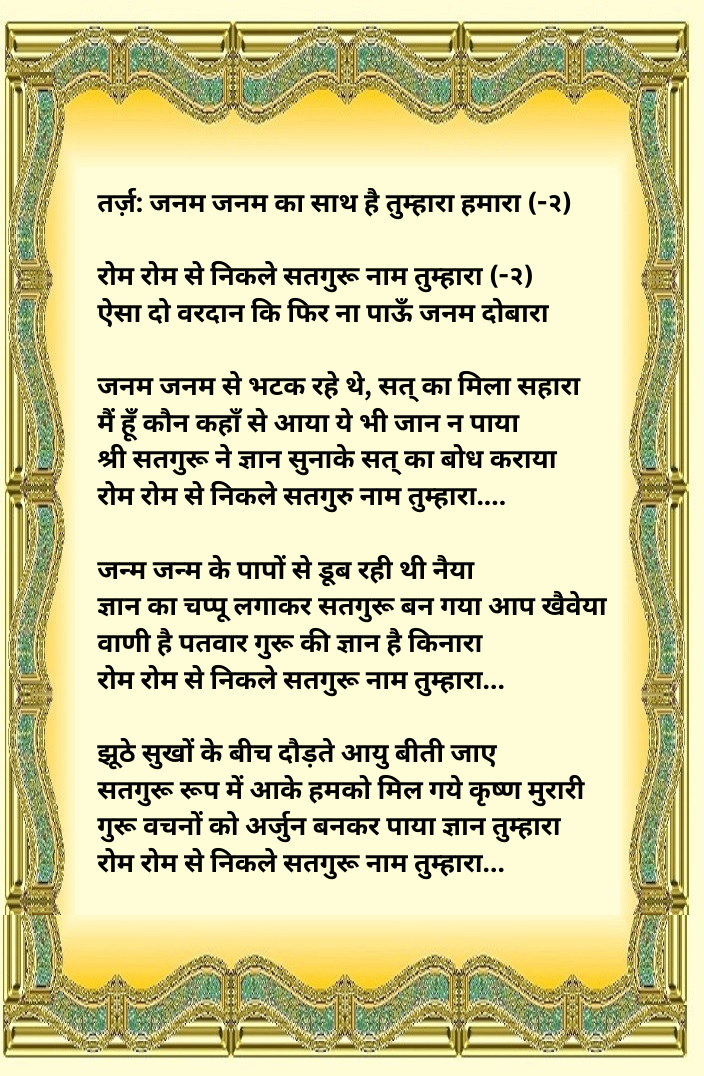 तर्ज़: जनम जनम का साथ है तुम्हारा हमारा (-२)
रोम रोम से निकले सतगुरू नाम तुम्हारा (-२)
ऐसा दो वरदान कि फिर ना पाऊँ जनम दोबारा
जनम जनम से भटक रहे थे, सत् का मिला सहारा
मैं हूँ कौन कहाँ से आया ये भी जान न पाया
श्री सतगुरू ने ज्ञान सुनाके सत् का बोध कराया
रोम रोम से निकले सतगुरु नाम तुम्हारा....
जन्म जन्म के पापों से डूब रही थी नैया
ज्ञान का चप्पू लगाकर सतगुरू बन गया आप खैवेया
वाणी है पतवार गुरू की ज्ञान है किनारा
रोम रोम से निकले सतगुरू नाम तुम्हारा...
झूठे सुखों के बीच दौड़ते आयु बीती जाए
सतगुरू रूप में आके हमको मिल गये कृष्ण मुरारी
गुरू वचनों को अर्जुन बनकर पाया ज्ञान तुम्हारा
रोम रोम से निकले सतगुरू नाम तुम्हारा...